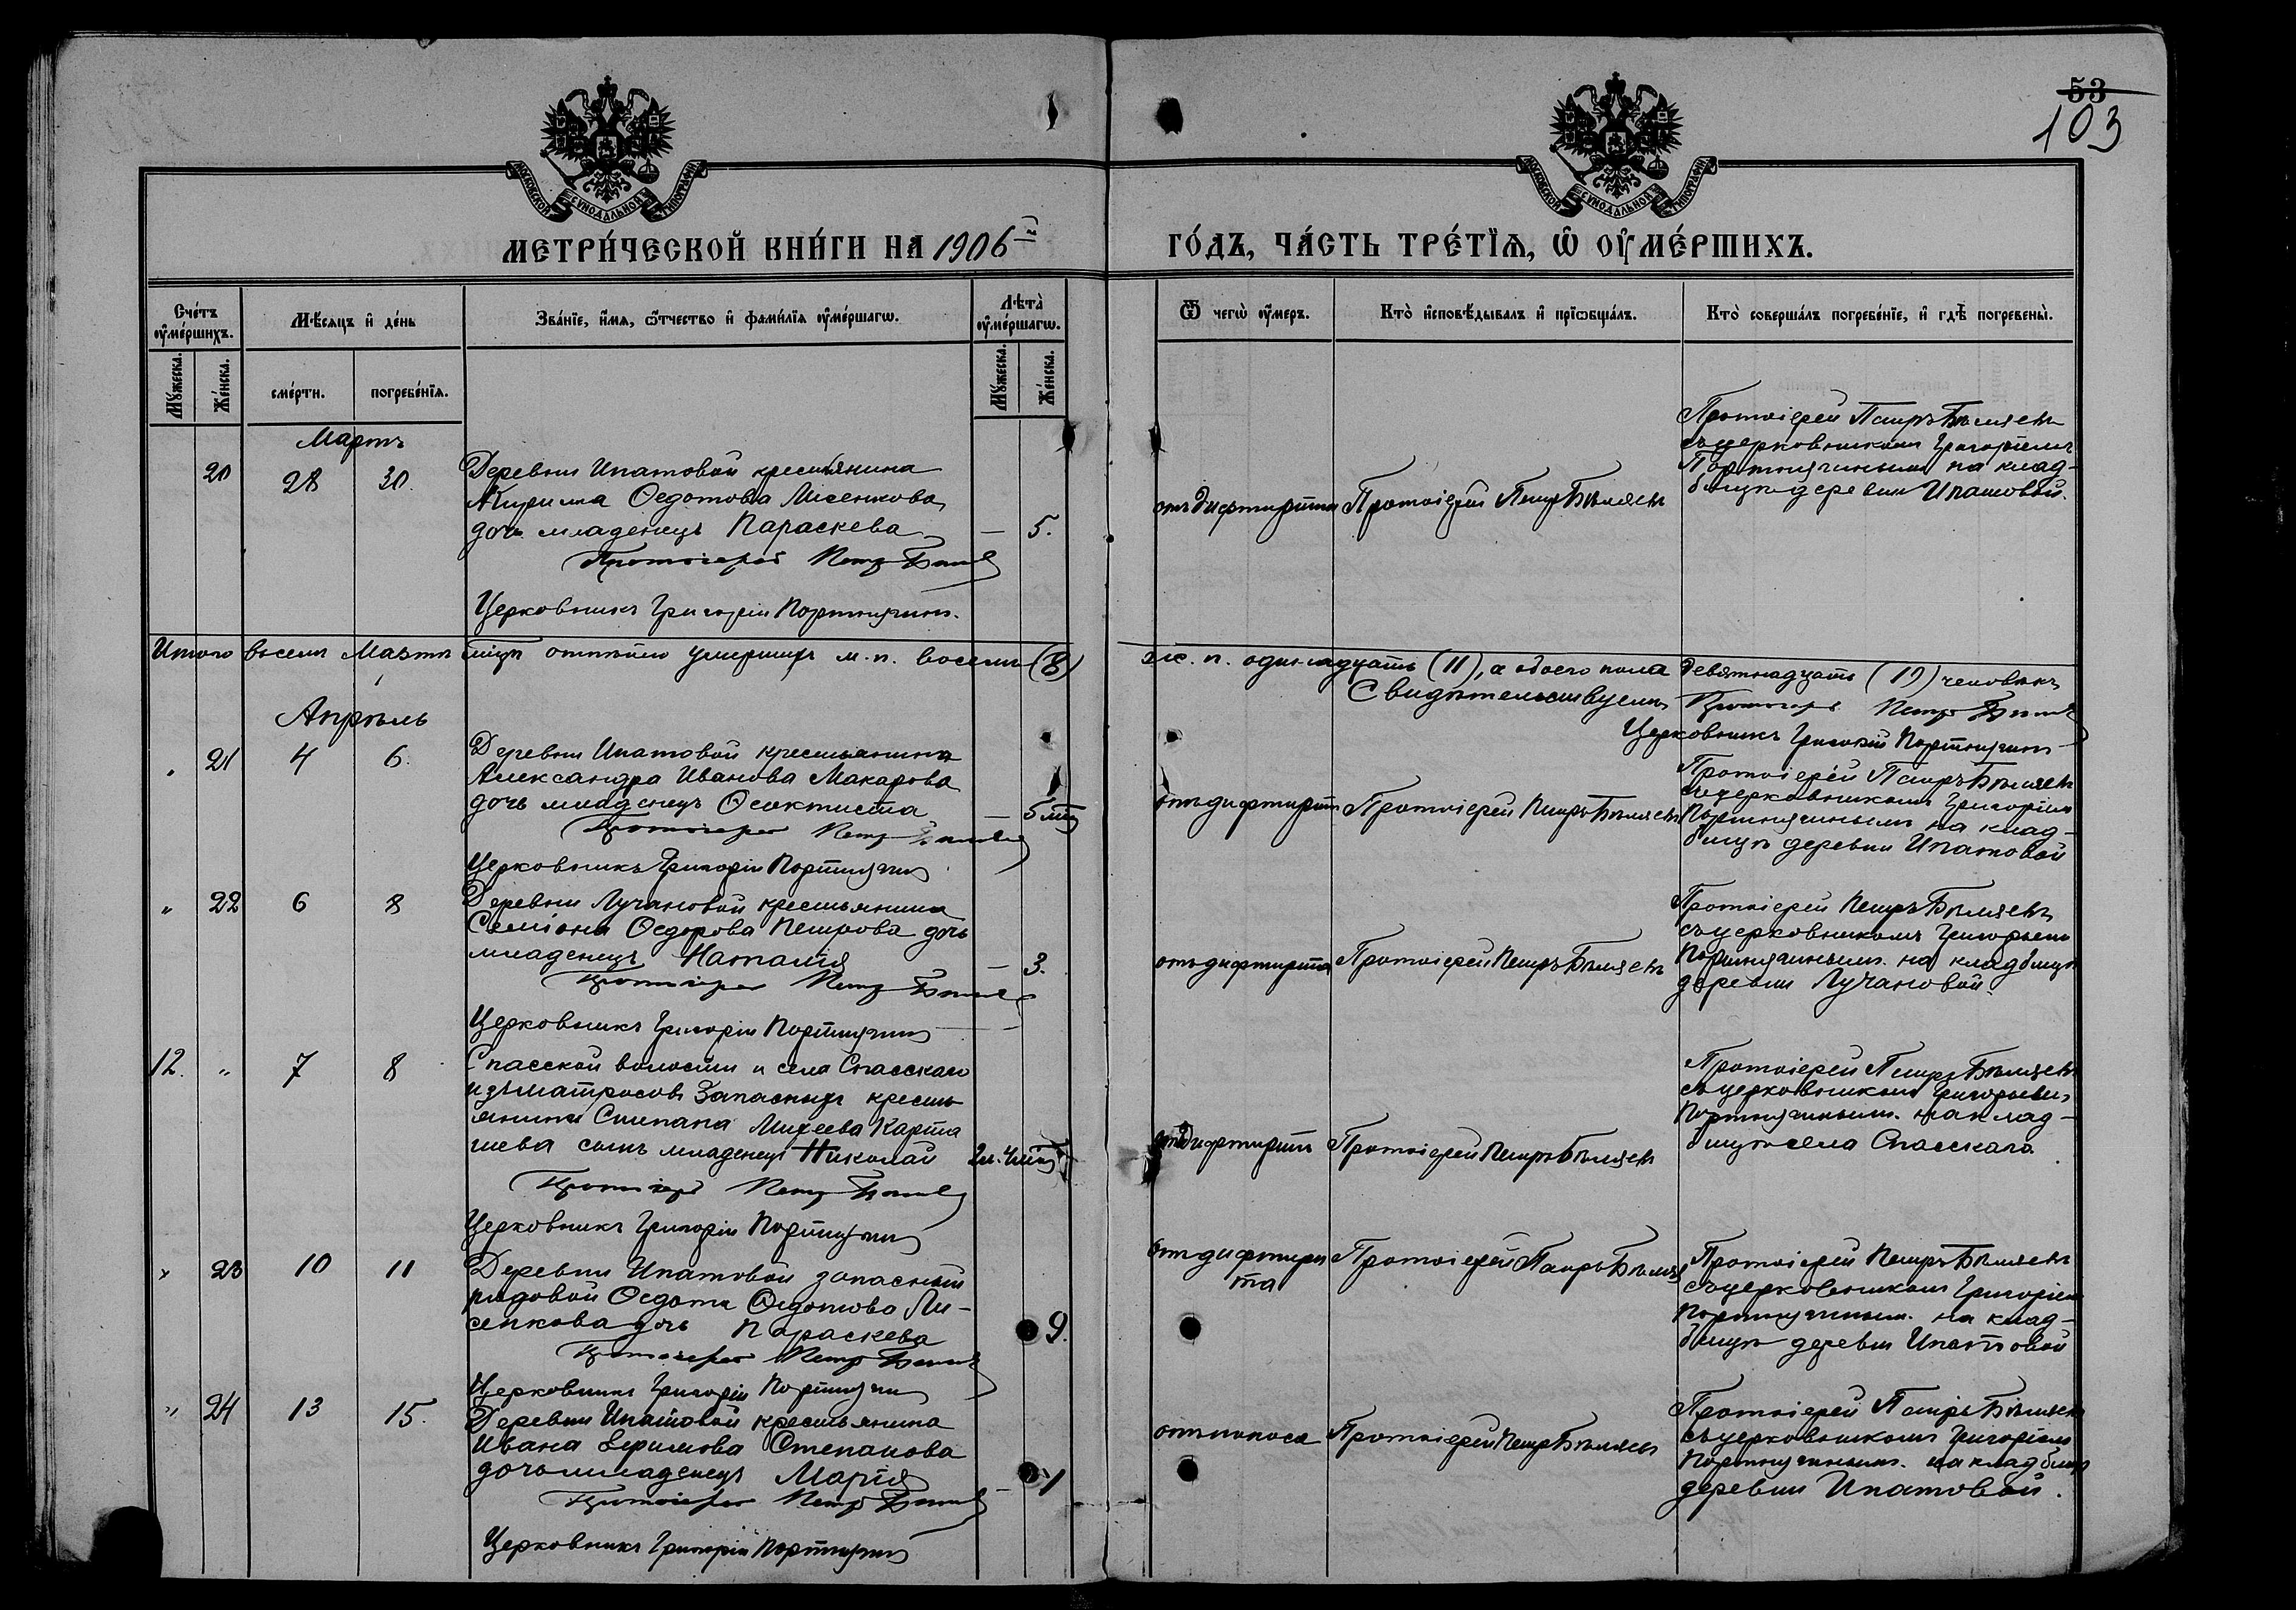 53
103
МОСКОВСКОЙ СѴНОДАЛЬНОЙ ТИПОГРАФІИ
МОСКОВСКОЙ СѴНОДАЛЬНОЙ ТИПОГРАФІИ
МЕТРИ́ЧЕСКОЙ КНИ́ГИ НА 1906й
ГО́ДЪ, ЧА́СТЬ ТРЕ́ТІЯ, Ѡ ОУМЕ́РШИХЪ.
Сче́тъ оуме́ршихъ.
Мѣ́сяцъ и де́нь
Зва́нїе, и́мя, ѻ́тчество и фами́лїя оуме́ршагѡ.
Лѣта̀ оуме́ршагѡ.
Ѿ чегѡ̀ оу́меръ.
Кто̀ и҆сповѣ́дывалъ и҆ прїѡбща́лъ.
Кто̀ соверша́лъ погребе́нїе, и҆ гдѣ̀ погребены̀.
Му́жеска.
Же́нска.
сме́рти.
погребе́нїя.
Му́жеска.
Же́нска.
Мартъ
20 28 30.
Деревни Ипатовой крестьянина
Кирила Ѳедотова Лисенкова
дочь младенецъ Параскева — 5.
Протоіерей Петръ Бѣляевъ
Церковникъ Григорій Портнягинъ.
отъ дифтирита
Протоіерей Петръ Бѣляевъ
Протоіерей Петръ Бѣляевъ
съ церковникомъ Григоріемъ
Портнягинымъ на клад-
бищѣ деревни Ипатовой.
Итого въ семъ Мартѣ мѣсяцѣ умершихъ м. п. восемь (8)
ж. п. одинадцать (11), а обоего пола девятнадцать (19) человѣкъ
Свидѣтельствуемъ Протоіерей Петръ Бѣляевъ
Церковникъ Григорій Портнягинъ
Апрѣль
„ 21 4 6.
Деревни Ипатовой крестьянина
Александра Иванова Макарова
дочь младенецъ Ѳеоктиста — 5 мѣс
Протоіерей Петръ Бѣляевъ
Церковникъ Григорій Портнягинъ
отъ дифтирита
Протоіерей Петръ Бѣляевъ
Протоіерей Петръ Бѣляевъ
съ церковникомъ Григоріемъ
Портнягинымъ на клад-
бищѣ деревни Ипатовой
„ 22 6 8
Деревни Лучановой крестьянина
Семіона Ѳедорова Петрова дочь
младенецъ Наталія — 3.
Протоіерей Петръ Бѣляевъ
Церковникъ Григорій Портнягинъ
отъ дифтирита
Протоіерей Петръ Бѣляевъ
Протоіерей Петръ Бѣляевъ
съ церковникомъ Григорьемъ
Портнягинымъ. на кладбищѣ
деревни Лучановой.
12. „ 7 8
Спасской волости и села Спасскаго
изъ матросовъ Запасныхъ кресть
янина Степана Михеева
сынъ младенецъ Николай 2 г. 4 мѣс
Протоіерей Петръ Бѣляевъ
Церковникъ Григорій Портнягинъ
отъ дифтирита
Протоіерей Петръ Бѣляевъ
Протоіерей Петръ Бѣляевъ
съ церковникомъ Григорьемъ
Портнягинымъ. на клад-
бищѣ села Спасскаго
„ 23 10 11
Деревни Ипатовой запасный
рядовой Ѳедота Ѳедотова Ли-
сенкова дочь Параскева 9.
Протоіерей Петръ Бѣляевъ
Церковникъ Григорій Портнягинъ
отъ дифтири
та
Протоіерей Петръ Бѣляевъ
Протоіерей Петръ Бѣляевъ
съ церковникомъ Григоріемъ
Портнягинымъ. на клад-
бищѣ деревни Ипатовой
„ 24 13 15.
Деревни Ипатовой крестьянина
Ивана Ефимова Степанова
дочь младенецъ Марія — 1
Протоіерей Петръ Бѣляевъ
Церковникъ Григорій Портнягинъ
отъ поноса
Протоіерей Петръ Бѣляевъ
Протоіерей Петръ Бѣляевъ
съ церковникомъ Григоріемъ
Портнягинымъ. на кладбищѣ
деревни Ипатовой.